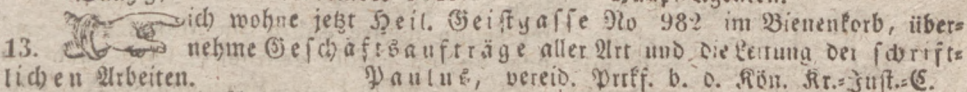 ich wohne jetzt Heil. Geistgasse No 982 im Bienenkorb, über-
13. nehme Geschäftsaufträge aller Art und die Leitung der schrift-
lichen Arbeiten. Paulus, vereid. Prtkf. b. d. Kön. Kr.-Just.-C.